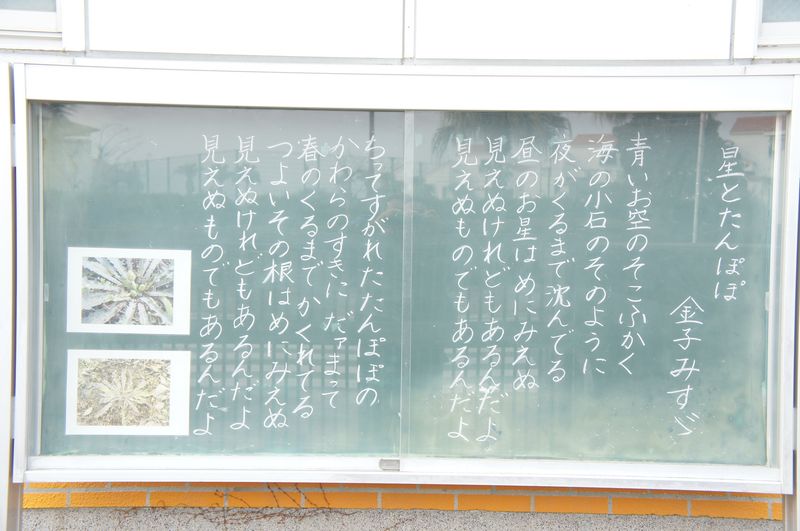 星とたんぽぽ
金子みすゞ
青いお空のそこふかく
海の小石のそのように
夜がくるまで沈んでる
昼のお星はめにみえぬ
見えぬけれどもあるんだよ
見えぬものでもあるんだよ
ちってすがれたたんぽぽの
かわらのすきにだァまって
春のくるまでかくれてる
つよいその根はめにみえぬ
見えぬけれどもあるんだよ
見えぬものでもあるんだよ